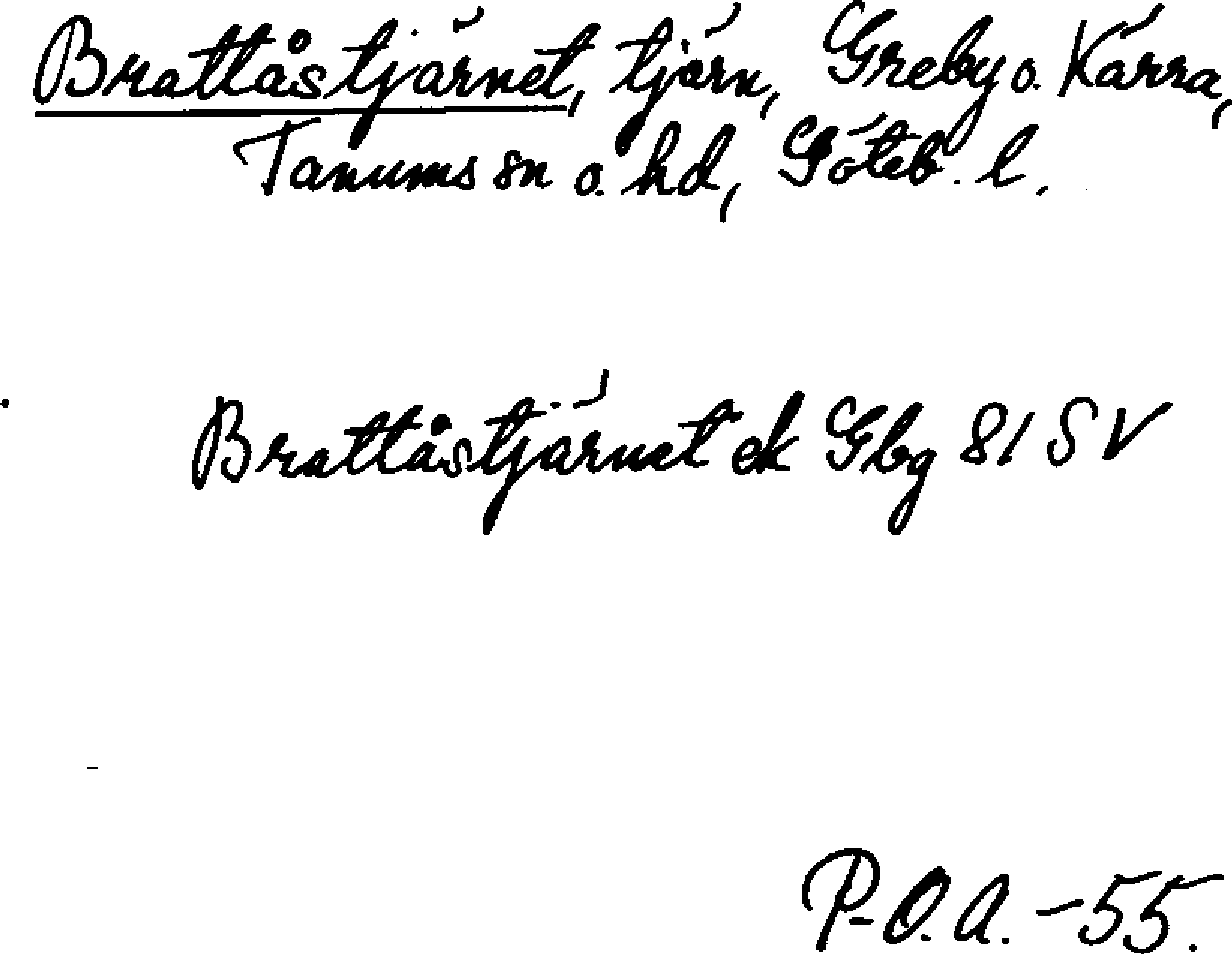 Brattåstjärnet, tjärn, Greby o. Kärra,
Tanums sn o. hd, Göteb. l.
Brattåstjärnet ek Gbg 81 SV
P-O.A. -55.